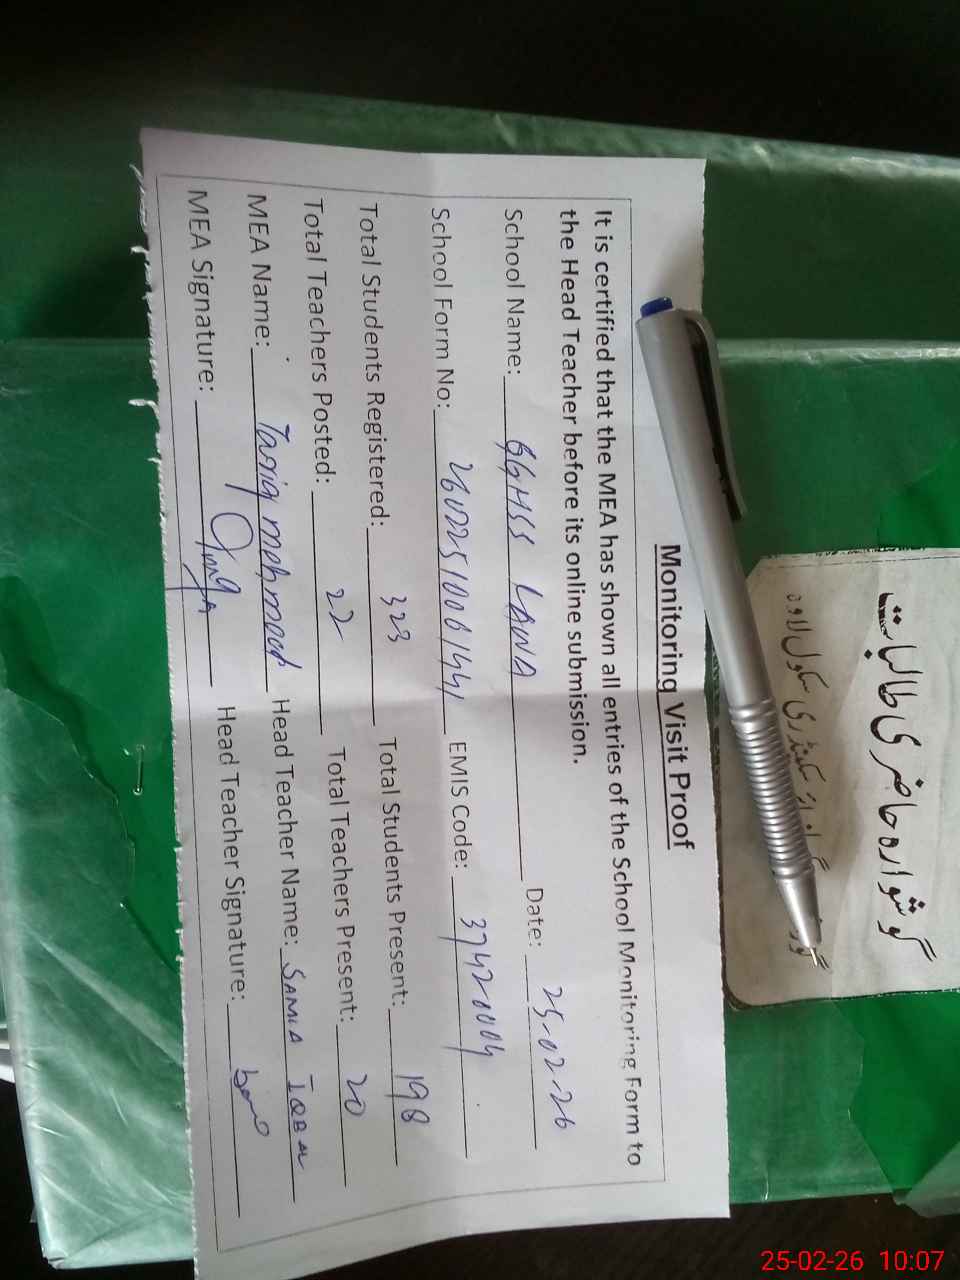 Monitoring Visit Proof
It is certified that the MEA has shown all entries of the School Monitoring Form to
the Head Teacher before its online submission.
School Name: GGHSS LAWA Date: 25-02-26
School Form No: 26022510061441 EMIS Code: 37420004
Total Students Registered: 323 Total Students Present: 198
Total Teachers Posted: 22 Total Teachers Present: 20
MEA Name: Tariq mehmood Head Teacher Name: SAMIA IQBAL
MEA Signature: Head Teacher Signature:
گوشوارہ حاضری طالبات
سکینڈری سکول لاوہ
25-02-26 10:07